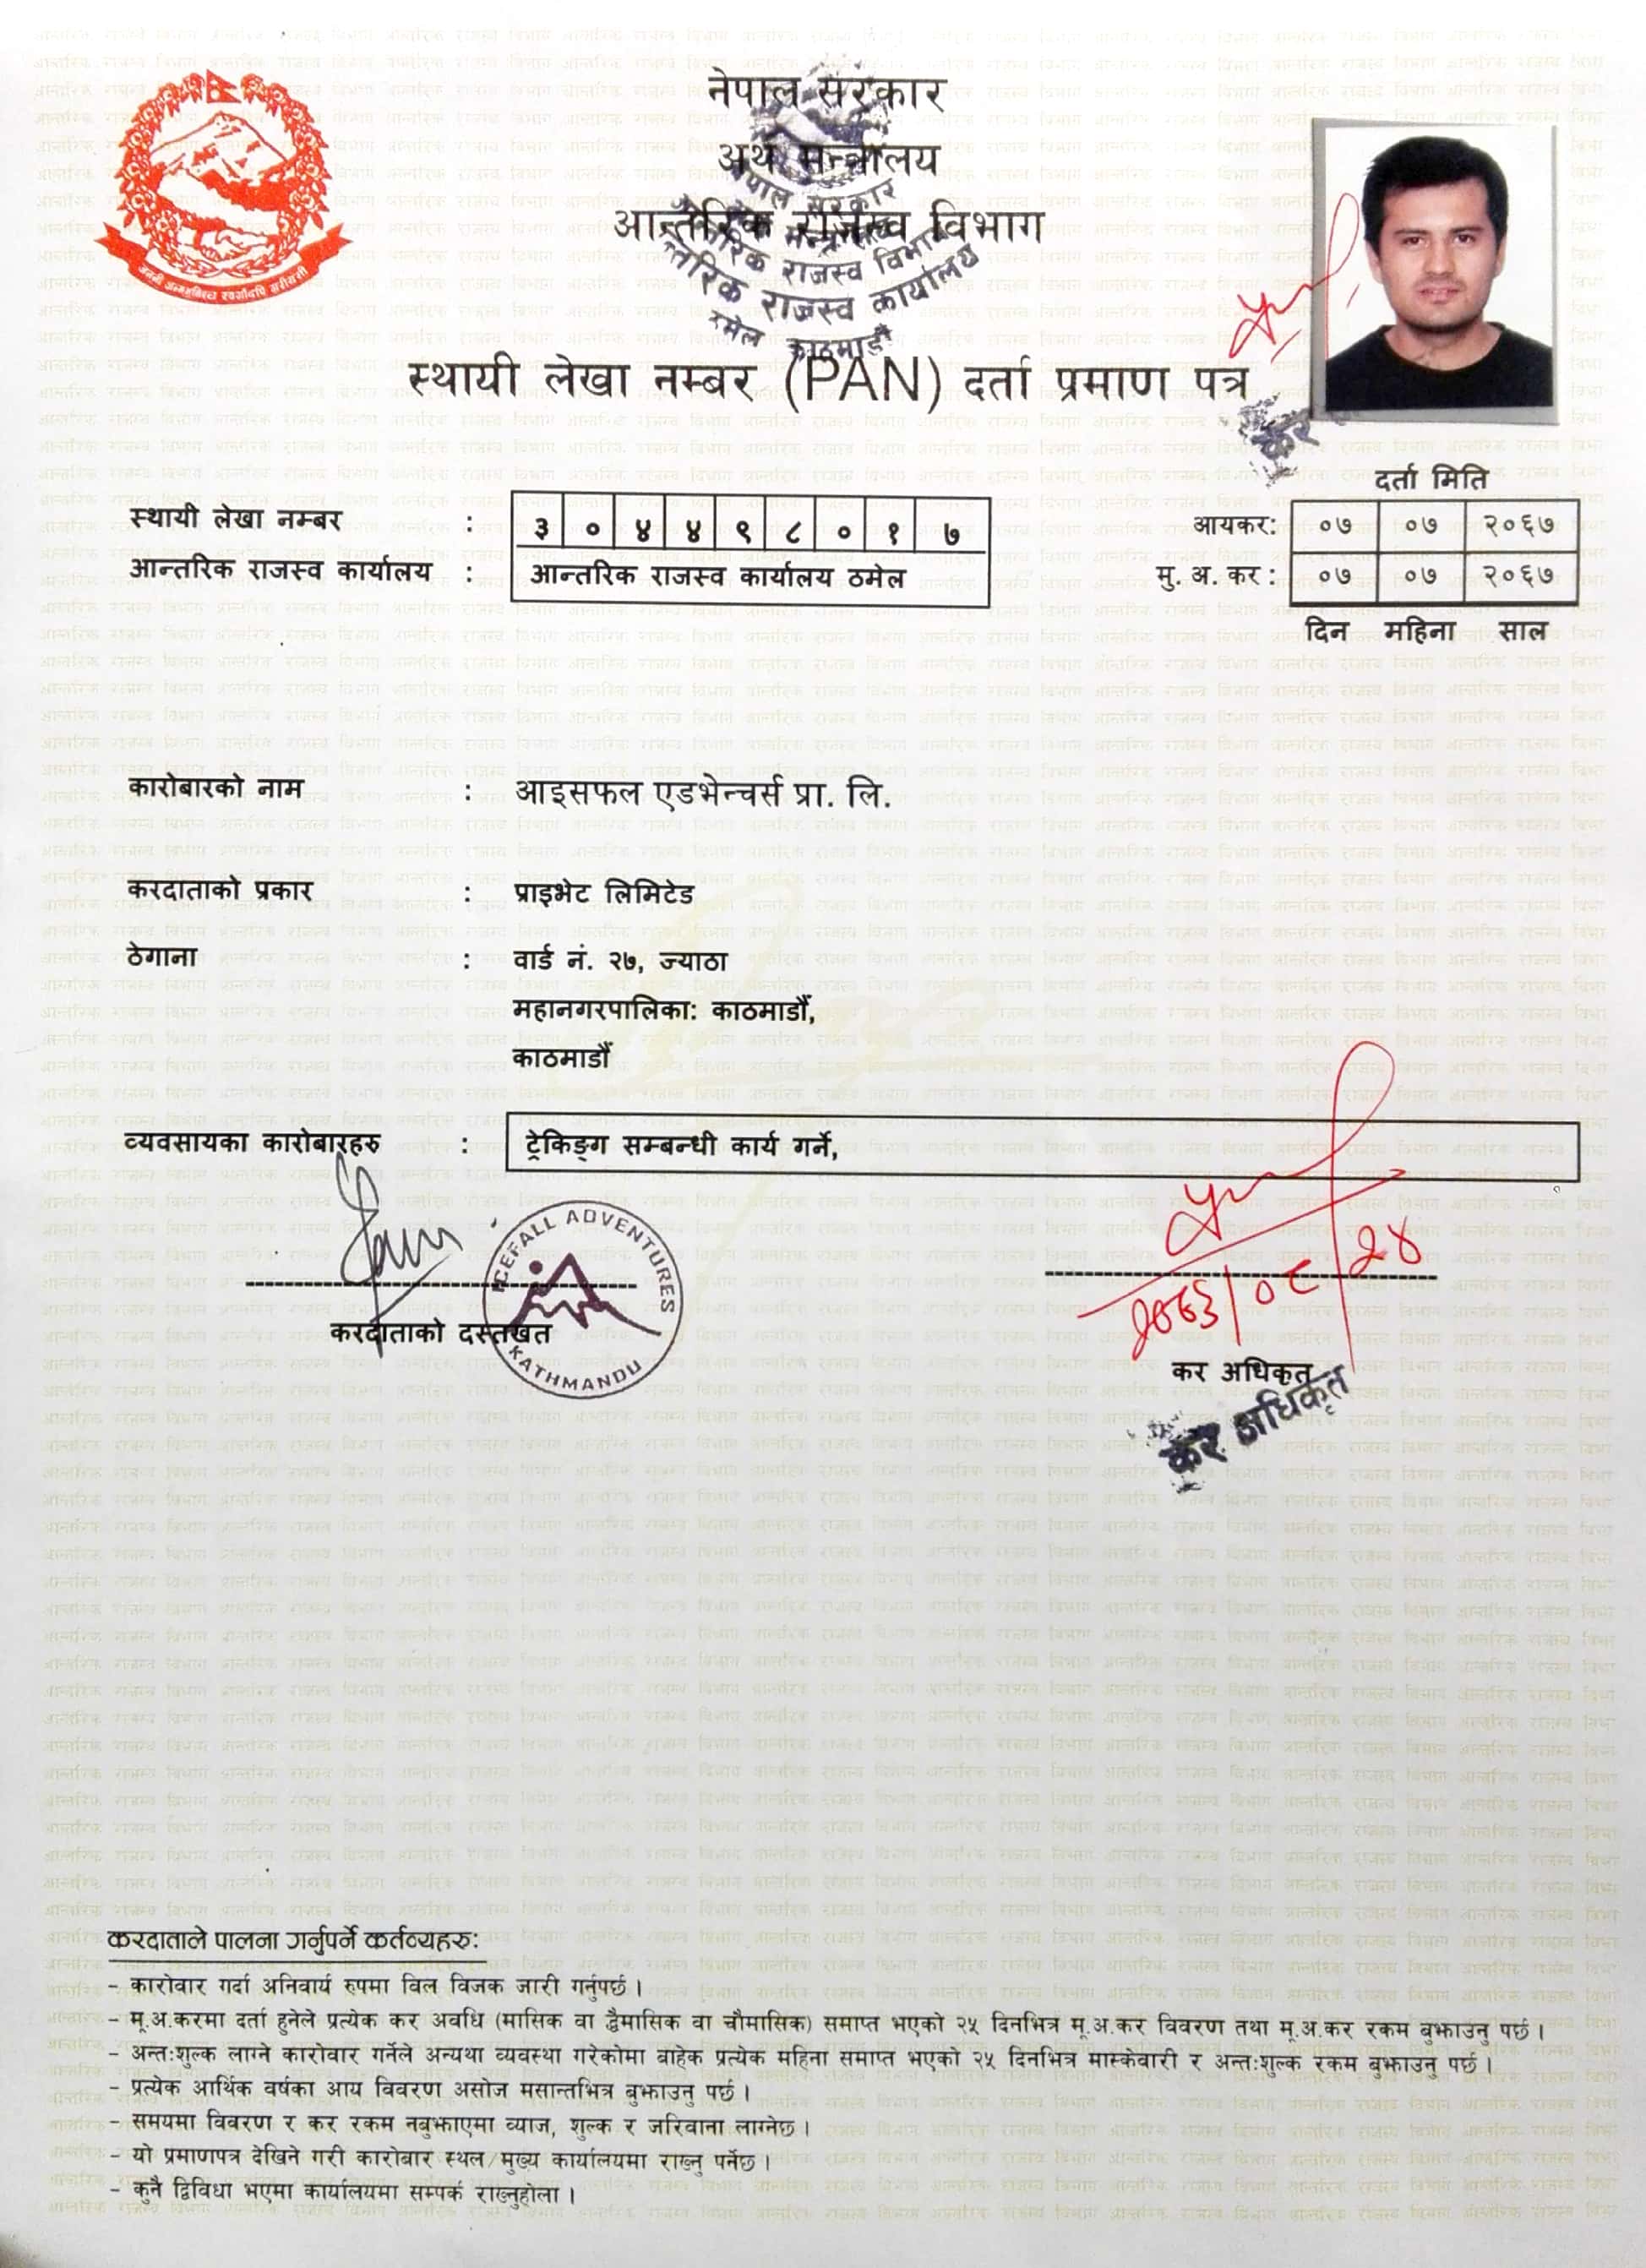 नेपाल सरकार
अर्थ मन्त्रालय
आन्तरिक राजस्व विभाग
नेपाल सरकार
राजस्व विभाग
राजस्व कार्यालय
काठमाडौं
जननी जन्मभूमिश्च स्वर्गादपि गरीयसी
स्थायी लेखा नम्बर (PAN) दर्ता प्रमाण पत्र
कर
दर्ता मिति
स्थायी लेखा नम्बर : ३ ० ४ ४ ९ ८ ० १ ७
आयकर: ०७ ०७ २०६७
आन्तरिक राजस्व कार्यालय : आन्तरिक राजस्व कार्यालय ठमेल
मु. अ. कर : ०७ ०७ २०६७
दिन महिना साल
कारोबारको नाम : आइसफल एडभेन्चर्स प्रा. लि.
करदाताको प्रकार : प्राइभेट लिमिटेड
ठेगाना : वार्ड नं. २७, ज्याठा
महानगरपालिका: काठमाडौं,
काठमाडौं
व्यवसायका कारोबारहरु : ट्रेकिङ्ग सम्बन्धी कार्य गर्ने,
ICEFALL ADVENTURES
KATHMANDU
करदाताको दस्तखत
कर अधिकृत
कर अधिकृत
करदाताले पालना गर्नुपर्ने कर्तव्यहरु:
- कारोवार गर्दा अनिवार्य रुपमा विल विजक जारी गर्नुपर्छ ।
- मू.अ.करमा दर्ता हुनेले प्रत्येक कर अवधि (मासिक वा द्वैमासिक वा चौमासिक) समाप्त भएको २५ दिनभित्र मू.अ.कर विवरण तथा मू.अ.कर रकम बुझाउनु पर्छ ।
- अन्तःशुल्क लाग्ने कारोवार गर्नेले अन्यथा व्यवस्था गरेकोमा बाहेक प्रत्येक महिना समाप्त भएको २५ दिनभित्र मास्केवारी र अन्तःशुल्क रकम बुझाउनु पर्छ ।
- प्रत्येक आर्थिक वर्षका आय विवरण असोज मसान्तभित्र बुझाउनु पर्छ ।
- समयमा विवरण र कर रकम नबुझाएमा व्याज, शुल्क र जरिवाना लाग्नेछ ।
- यो प्रमाणपत्र देखिने गरी कारोबार स्थल/मुख्य कार्यालयमा राख्नु पर्नेछ ।
- कुनै द्विविधा भएमा कार्यालयमा सम्पर्क राख्नुहोला ।